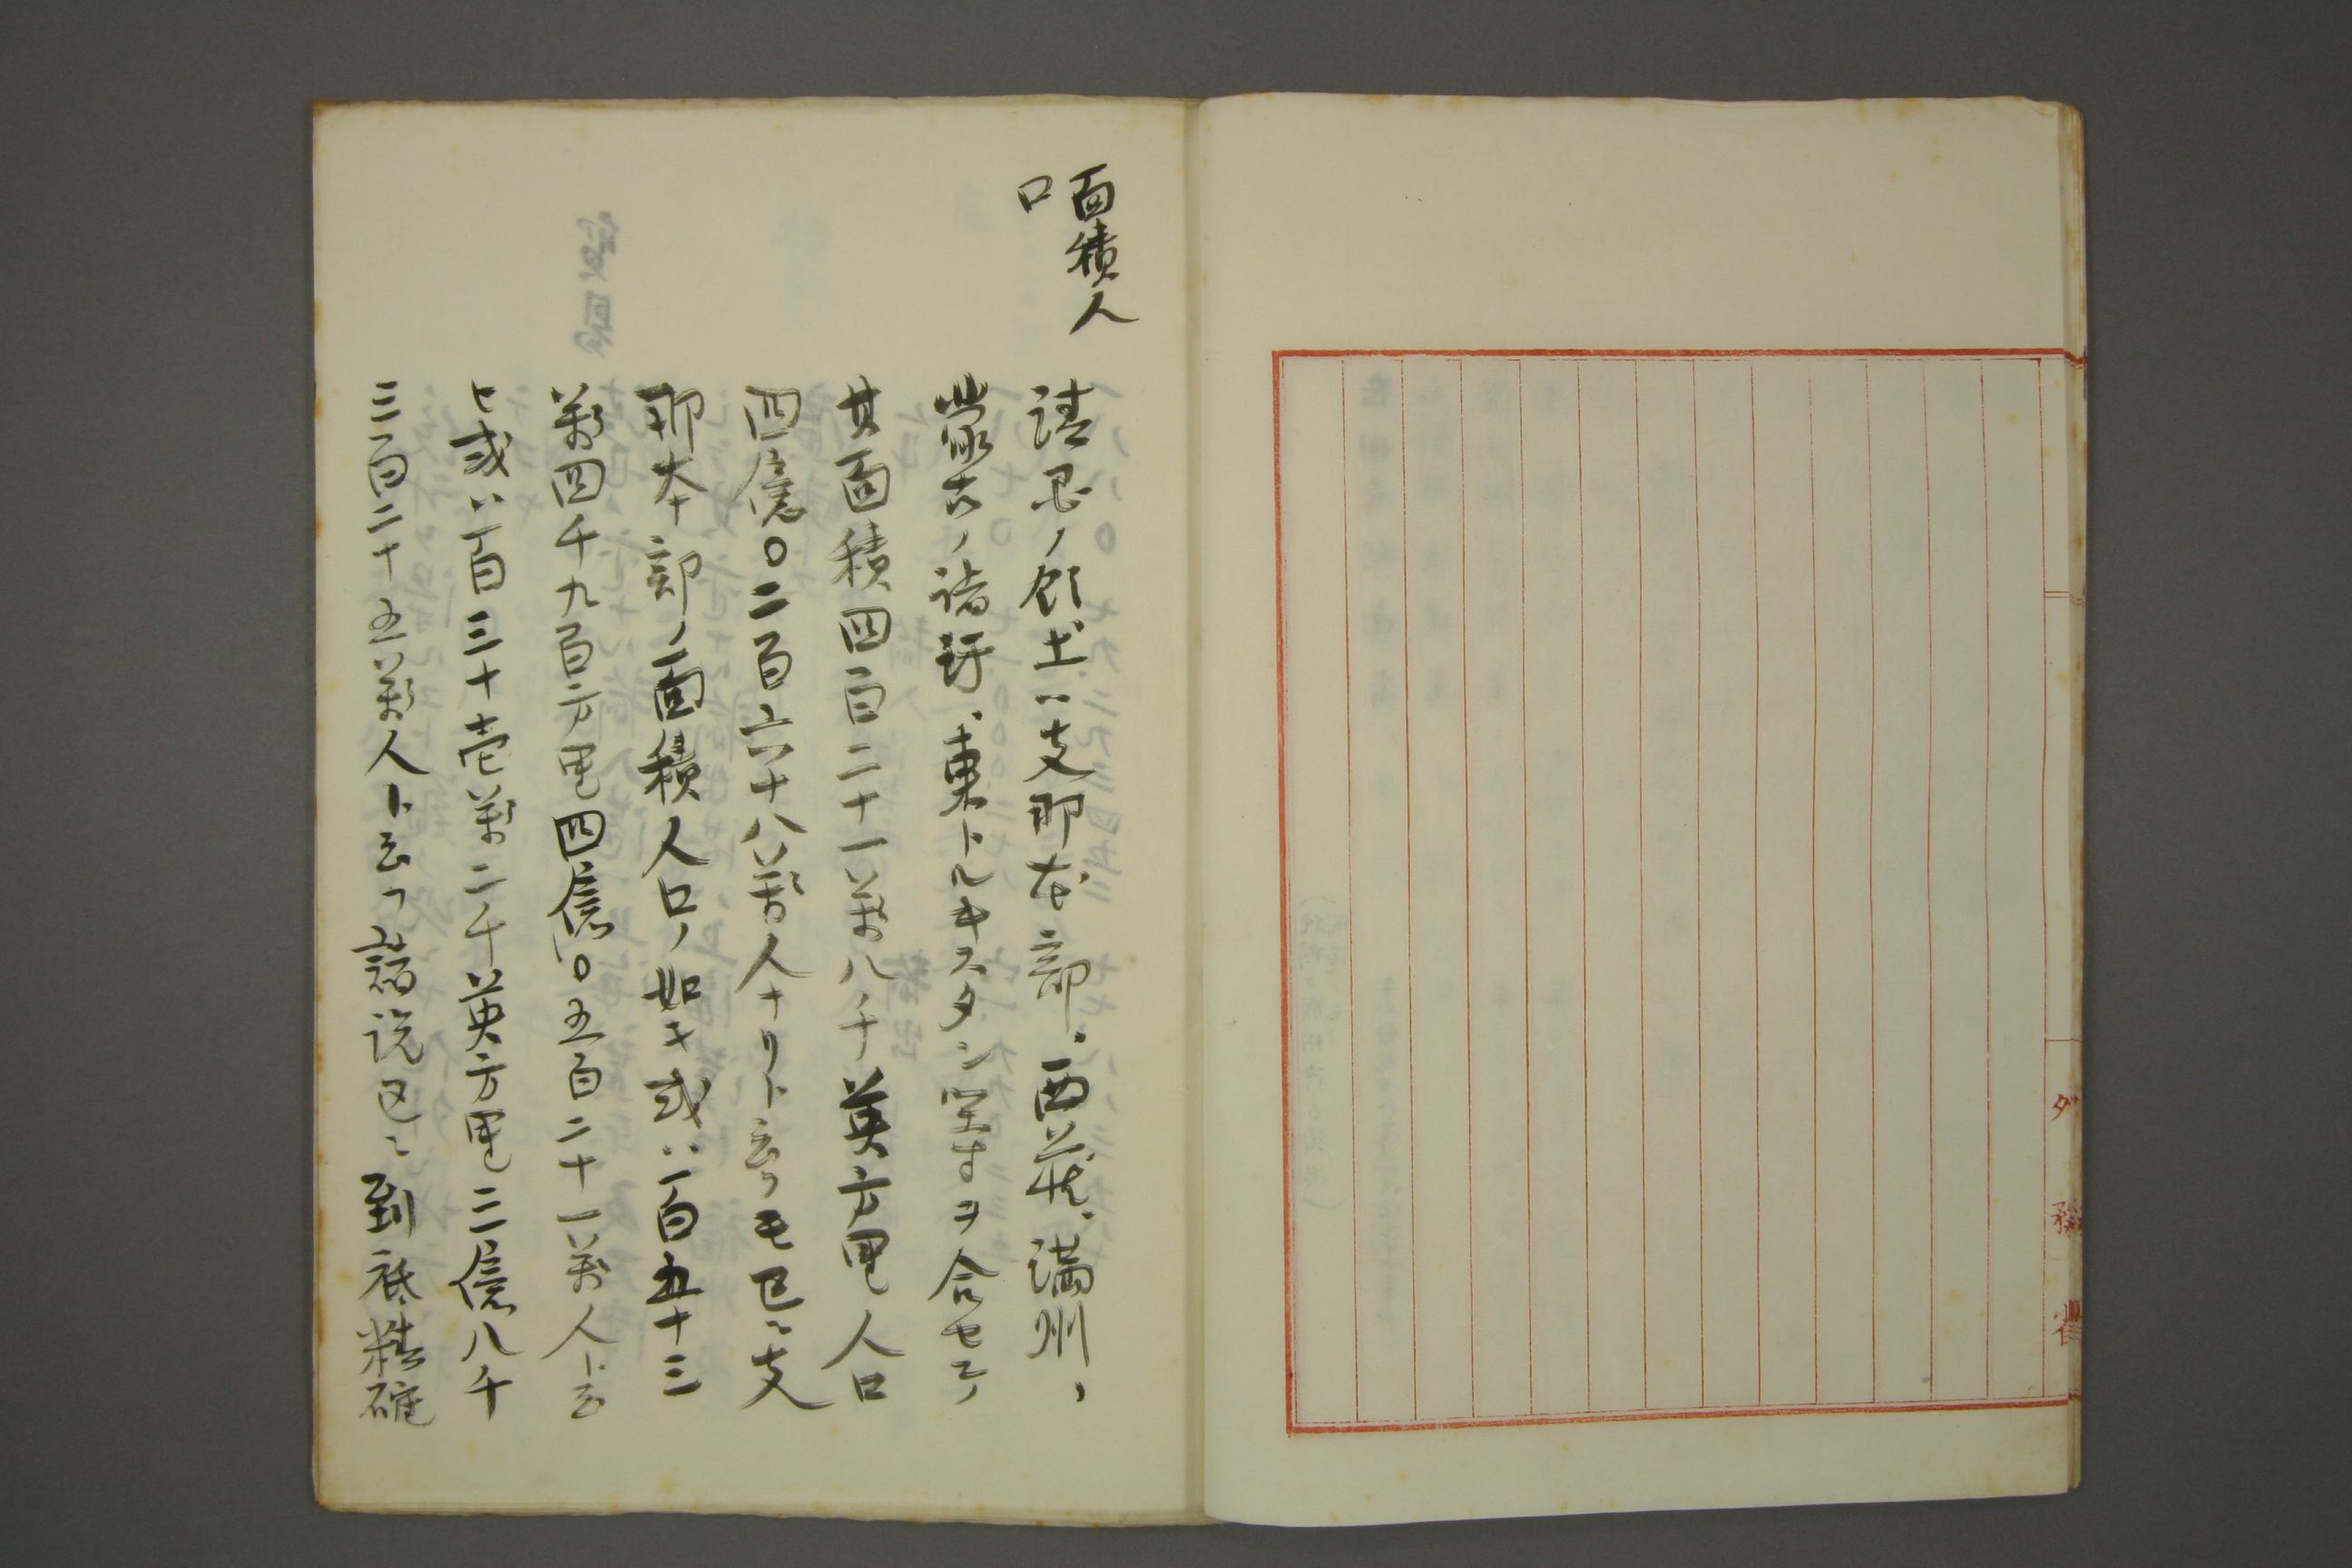 外務省
面積人
口
清国ノ領土ハ支那本部、西蔵、満州、
蒙古ノ諸部、東トルキスタン等ヲ合セテ
其面積四百二十一萬八千英方里人口
四億〇二百六十八萬人ナリト云フモ已ニ支
那本部ノ面積人口ノ如キ或ハ一百五十三
萬四千九百方里四億〇五百二十一萬人ト云
ヒ或ハ一百三十壱萬二千英方里三億八千
三百二十五萬人ト云フ諸説アリ到底精確